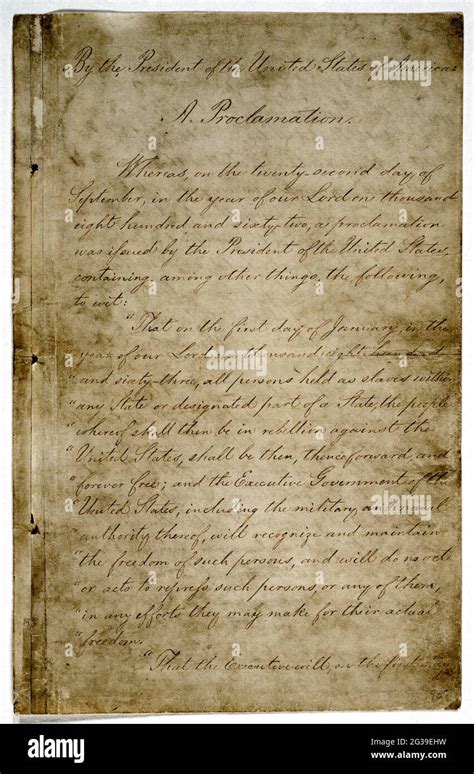 By the President of the United States of America:
A Proclamation.
Whereas, on the twenty-second day of
September, in the year of our Lord one thousand
eight hundred and sixty-two, a proclamation
was issued by the President of the United States,
containing, among other things, the following,
to wit:
"That on the first day of January, in the
"year of our Lord one thousand eight hundred
"and sixty-three, all persons held as slaves within
"any State or designated part of a State, the people
"whereof shall then be in rebellion against the
"United States, shall be then, thenceforward, and
"forever free; and the Executive Government of the
"United States, including the military and naval
"authority thereof, will recognize and maintain
"the freedom of such persons, and will do no act
"or acts to repress such persons, or any of them,
"in any efforts they may make for their actual
"freedom.
"That the Executive will, on the first
alamy
Image ID: 2G39EHW
www.alamy.com